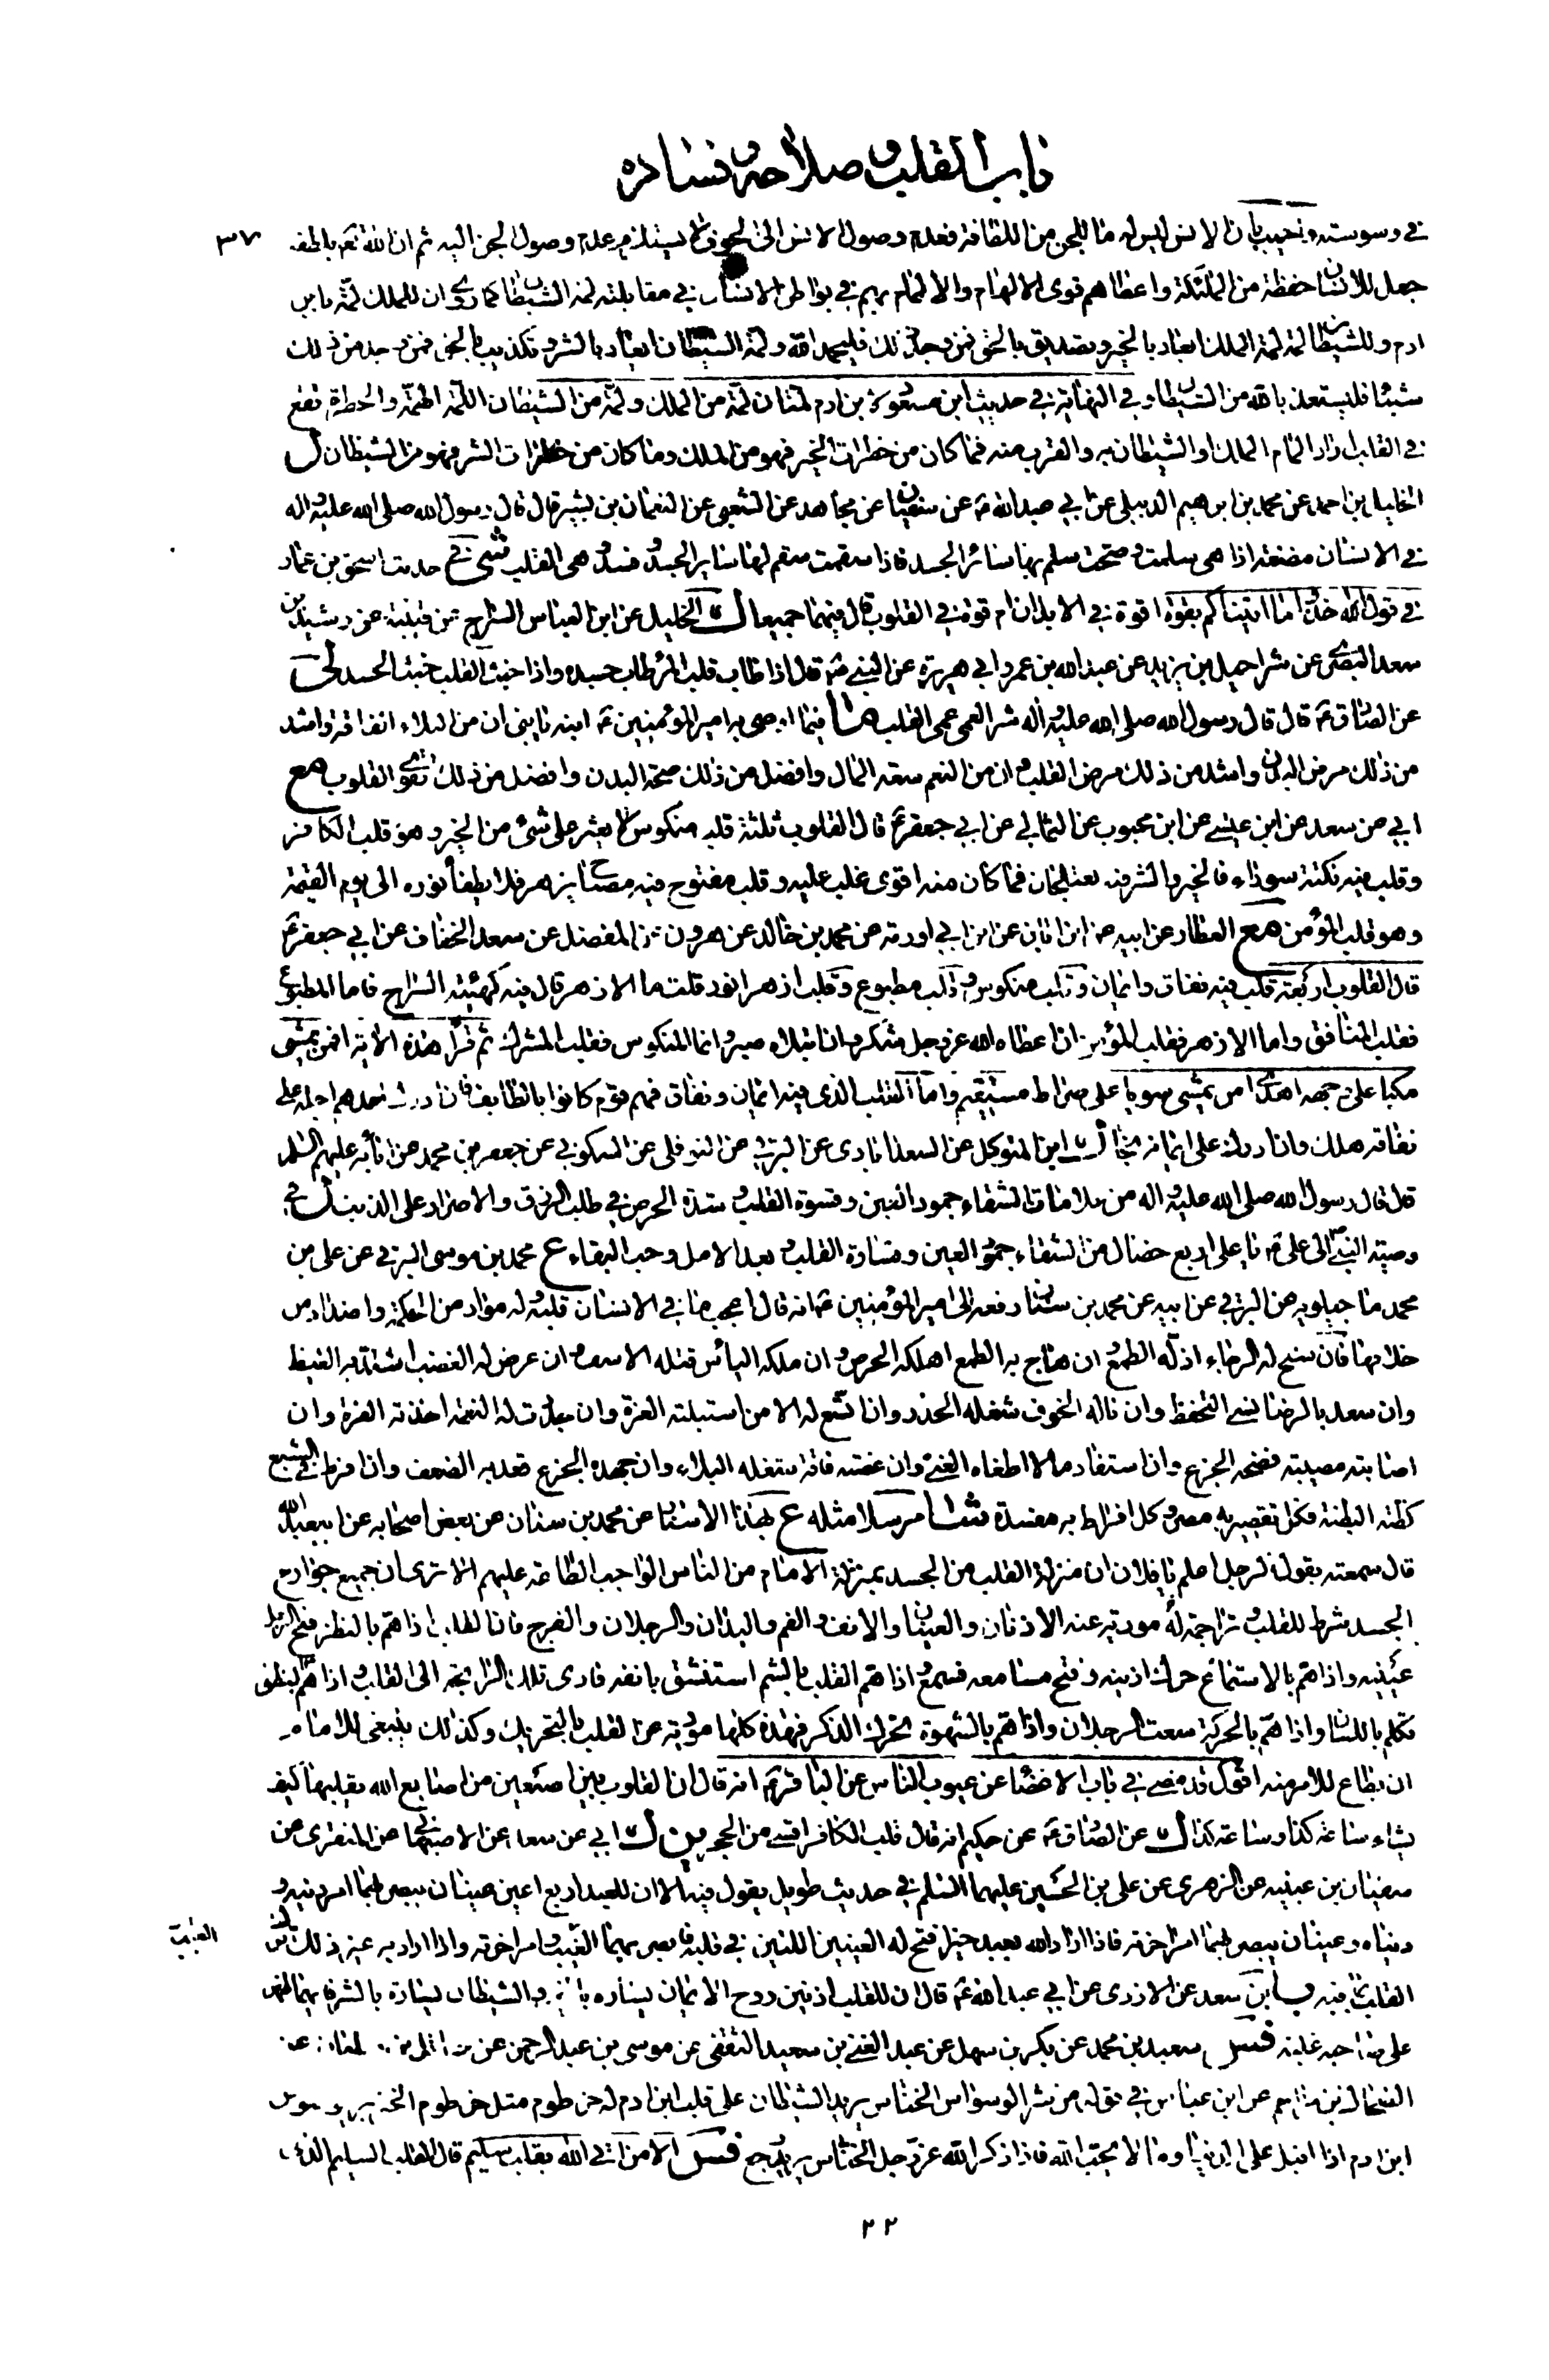 باب القلب و صلاحه و فساده
٣٧
في وسوسته ويجيب بان الانس ليس له ما للجن من اللطافة فعدم وصول الانس الى الجوف لا يستلزم عدم وصول الجن اليه ثم ان الله تعالى بلطفه
جعل للانسان حفظة من الملئكة واعطاهم قوى الالهام والالمام بهم في بواطن الانسان في مقابلة لمة الشيطان كما روى ان للملك لمة بابن
ادم وللشيطان لمة لمة الملك ايعاد بالخير وتصديق بالحق فمن وجد ذلك فليحمد الله ولمة الشيطان ايعاد بالشر وتكذيب بالحق فمن وجد من ذلك
شيئا فليستعذ بالله من الشيطان وفي النهاية في حديث ابن مسعود لابن ادم لمتان لمة من الملك ولمة من الشيطان اللمة الهمة والخطرة تقع
في القلب اراد المام الملك او الشيطان به والقرب منه فما كان من خطرات الخير فهو من الملك وما كان من خطرات الشر فهو من الشيطان ل
الخليل بن احمد عن محمد بن ابراهيم الدبيلي عن ابي عبد الله عن سفيان عن مجاهد عن الشعبي عن النعمان بن بشير قال قال رسول الله صلى الله عليه واله
في الانسان مضغة اذا هي سلمت وصحت سلم بها سائر الجسد فاذا سقمت سقم لها سائر الجسد وفسد وهي القلب شي في حديث اسحق بن عمار
في قول الله خذوا ما اتيناكم بقوة اقوة في الابدان ام قوة في القلوب قال فيهما جميعا ل الخليل عن ابن العباس السراج عن قتيبة عن رشيد بن
سعد البصري عن شراحيل بن يزيد عن عبد الله بن عمر وابي هريرة عن النبي ص قال اذا طاب قلب المرء طاب جسده واذا خبث القلب خبث الجسد لي
عن الصادق ع قال قال رسول الله صلى الله عليه واله شر العمى عمى القلب ما فيما اوصى به امير المؤمنين ع ابنه يا بني ان من البلاء الفاقة واشد
من ذلك مرض البدن واشد من ذلك مرض القلب وان من النعم سعة المال وافضل من ذلك صحة البدن وافضل من ذلك تقوى القلوب مع
ابي عن سعد عن ابن عيسى عن ابن محبوب عن الثمالي عن ابي جعفر ع قال القلوب ثلثة قلب منكوس لا يعثر على شئ من الخير وهو قلب الكافر
وقلب فيه نكتة سوداء فالخير والشر فيه يعتلجان فما كان منه اقوى غلب عليه وقلب مفتوح فيه مصباح يزهر فلا يطفأ نوره الى يوم القيمة
وهو قلب المؤمن مع العطار عن ابيه عن ابن ابان عن ابن ابي اورمة عن محمد بن خالد عن هرون عن المفضل عن سعد الخفاف عن ابي جعفر ع
قال القلوب اربعة قلب فيه نفاق وايمان وقلب منكوس وقلب مطبوع وقلب ازهر انور قلت ما الازهر قال فيه كهيئة السراج فاما المطبوع
فقلب المنافق واما الازهر فقلب المؤمن ان اعطاه الله عز وجل شكر وان ابتلاه صبر واما المنكوس فقلب المشرك ثم قرأ هذه الاية افمن يمشي
مكبا على وجهه اهدى امن يمشي سويا على صراط مستقيم واما القلب الذي فيه ايمان ونفاق فهم قوم كانوا بالطائف فان ادرك احدهم اجله على
نفاقه هلك وان ادركه على ايمانه نجا ل ابن المتوكل عن السعدابادي عن البرقي عن النوفلي عن السكوني عن جعفر بن محمد عن ابائه عليهم السلم
قال قال رسول الله صلى الله عليه واله من علامات الشقاء جمود العين وقسوة القلب وشدة الحرص في طلب الرزق والاصرار على الذنب ل في
وصية النبي ص الى علي ع يا علي اربع خصال من الشقاء جمود العين وقساوة القلب وبعد الامل وحب البقاء ع محمد بن موسى البرقي عن علي بن
محمد ماجيلويه عن البرقي عن ابيه عن محمد بن سنان رفعه الى امير المؤمنين ع انه قال اعجب ما في الانسان قلبه وله مواد من الحكمة واضداد من
خلافها فان سنح له الرجاء اذله الطمع وان هاج به الطمع اهلكه الحرص وان ملكه الياس قتله الاسف وان عرض له الغضب اشتد به الغيظ
وان سعد بالرضا نسي التحفظ وان ناله الخوف شغله الحذر وان اتسع له الامن استلبته الغرة وان جددت له النعمة اخذته العزة وان
اصابته مصيبة فضحه الجزع وان استفاد مالا اطغاه الغنى وان عضته فاقة شغله البلاء وان جهده الجزع قعد به الضعف وان افرط في الشبع
كظته البطنة فكل تقصير به مضر وكل افراط به مفسد شا مرسلا مثله ع بهذا الاسناد عن محمد بن سنان عن بعض اصحابه عن ابي عبد الله
قال سمعته يقول لرجل اعلم يا فلان ان منزلة القلب من الجسد بمنزلة الامام من الناس الواجب الطاعة عليهم الا ترى ان جميع جوارح
الجسد شرط للقلب وتراجمة له مودية عنه الاذنان والعينان والانف والفم واليدان والرجلان والفرج فان القلب اذا هم بالنظر فتح الرجل
عينيه واذا هم بالاستماع حرك اذنيه وفتح مسامعه فسمع واذا هم القلب بالشم استنشق بانفه فادى تلك الرائحة الى القلب واذا هم بالنطق
تكلم باللسان واذا هم بالحركة سعت الرجلان واذا هم بالشهوة تحرك الذكر فهذه كلها مودية عن القلب بالتحريك وكذلك ينبغي للامام
ان يطاع للامر منه اقول قد مضى في باب الاغضاء عن عيوب الناس عن الباقر ع انه قال ان القلوب بين اصبعين من اصابع الله يقلبها كيف
يشاء ساعة كذا وساعة كذا ل عن الصادق ع عن حكيم انه قال قلب الكافر اقسى من الحجر ين ل ابي عن سعد عن الاصبهاني عن المنقري عن
سفيان بن عيينه عن الزهري عن علي بن الحسين عليهما السلم في حديث طويل يقول فيه الا ان للعبد اربع اعين عينان يبصر بهما امر دينه و
دنياه وعينان يبصر بهما امر اخرته فاذا اراد الله بعبد خيرا فتح له العينين اللتين في قلبه فابصر بهما الغيب وامر اخرته واذا اراد به غير ذلك ترك
القلب بما فيه ب ابن سعد عن الازدي عن ابي عبد الله ع قال ان للقلب اذنين روح الايمان يساره بالخير والشيطان يساره بالشر فايهما ظهر
على صاحبه غلبه فس سعيد بن محمد عن بكر بن سهل عن عبد الغني بن سعيد الثقفي عن موسى بن عبد الرحمن عن مقاتل بن سليمان عن
الضحاك بن مزاحم عن ابن عباس في قوله من شر الوسواس الخناس يريد الشيطان على قلب ابن ادم له خرطوم مثل خرطوم الخنزير يوسوس
ابن ادم اذا اقبل على الدنيا وما لا يحب الله فاذا ذكر الله عز وجل الخناس يريد يرجع فس الا من اتى الله بقلب سليم قال القلب السليم الذي
٢٢